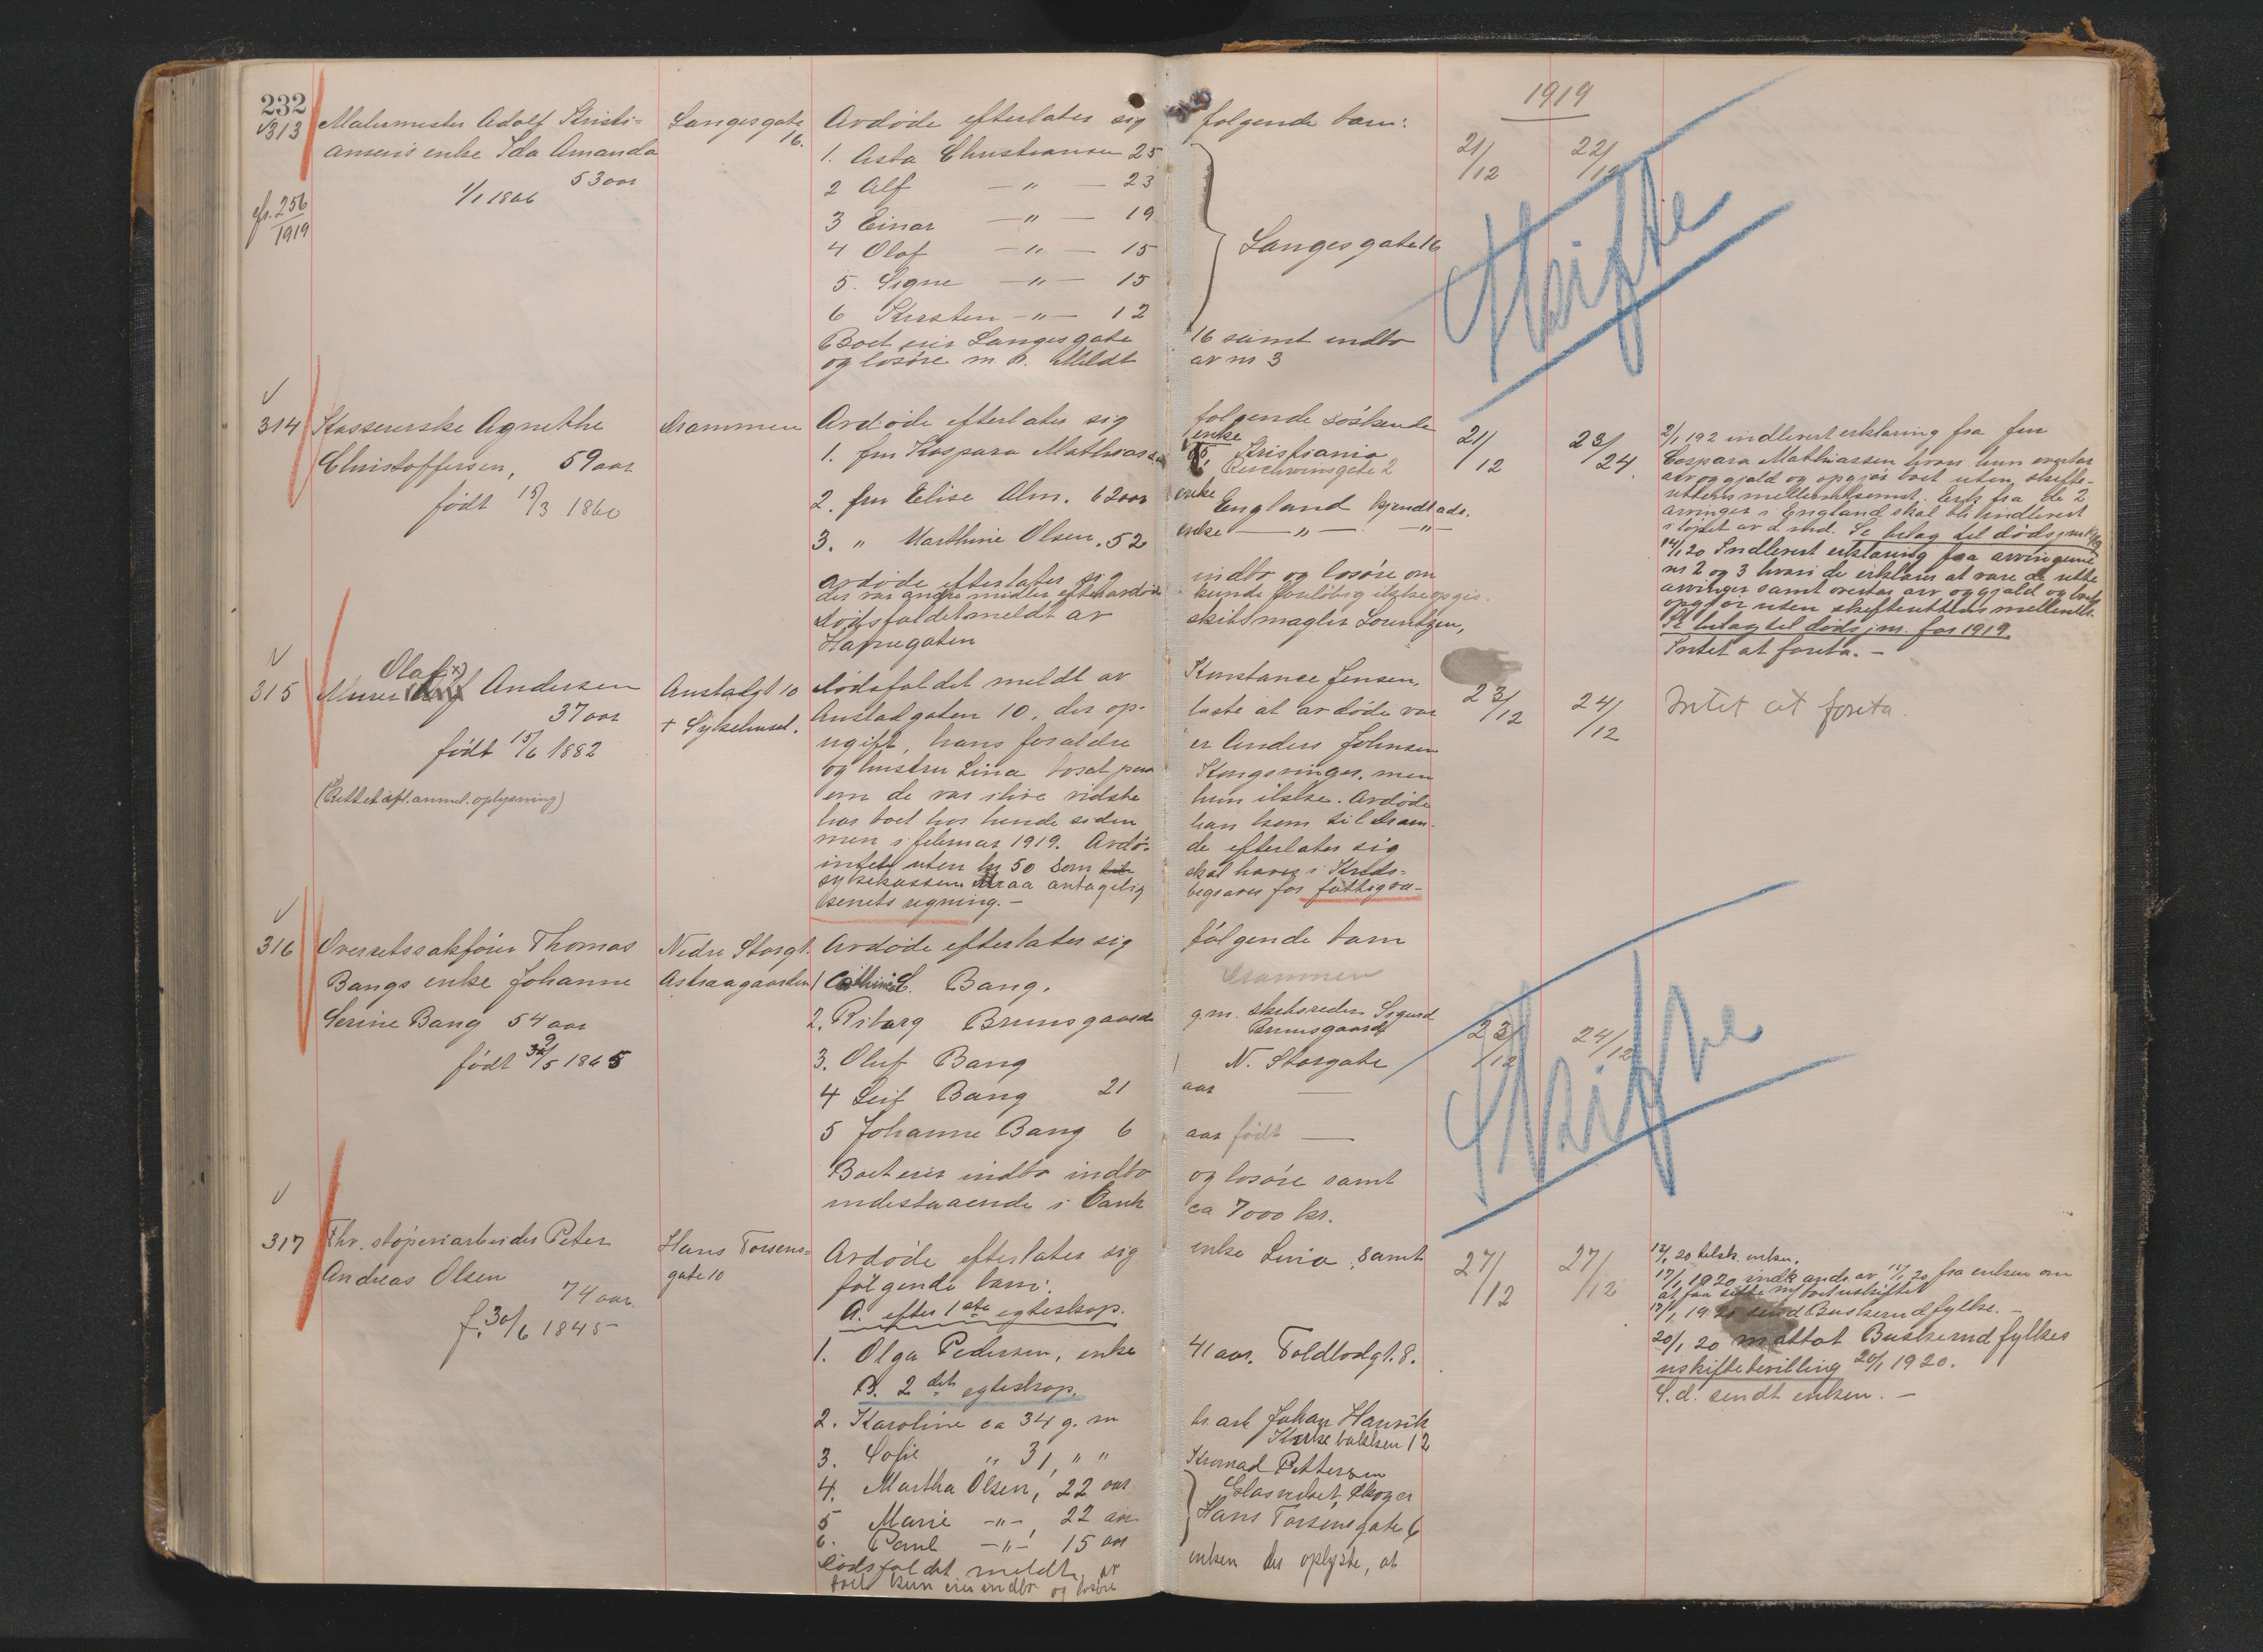 232
1919
313
Malermester Adolf Kristi=
ansens enke Ida Amanda
53 aar
1/1 1866
cfr. 256/1919
Langesgate
16.
Avdøde efterlater sig følgende barn:
1. Asta Christiansen 25
2 Alf — " — 23
3 Einar — " — 19
4 Olaf — " — 15
5. Signe — " — 15
6 Kirsten — " — 12
Langesgate 16
Boet eier Langesgate 16 samt indbo
og løsøre m. v. Meldt av nr 3
21/12
22/12
Skifte
314
Kassererske Agnethe
Christoffersen, 59 aar
født 15/3 1860
Drammen
Avdøde efterlater sig følgende søskende
1. fru Kaspara Mathiassen enke Kristiania
2. fru Elise Alm. 62 aar enke England kjendt adr.
3. " Marthine Olsen. 52 enke — " — — " —
avdøde efterlater sig indbo og løsøre om
der var andre midler efter avdøde kunde foreløbig ikke opgis.
Dødsfaldet meldt av skibsmægler Lorentzen,
Havnegaten
21/12
23/24
2/1 192 indlevert erklæring fra fru
Caspara Mathiassen hvori hun overtar
arv og gjæld og opgjør boet uten skifte-
rettens mellemkomst. Erk. fra de 2
arvinger i England skal bli indlevert
i løpet av d. md. Se bilag til dødsj.
14/1 20 Indlevert erklæring fra arvingerne
nr 2 og 3 hvori de erklærer at være de rette
arvinger samt overtar arv og gjæld og boets
opgjør uten skifterettens mellemk.
Se bilag til dødsj. m. for 1919.
Intet at foreta. —
315
Olaf x)
Murer Andersen
37 aar
født 15/6 1882
(Rettet eft. anmel. oplysning)
Anstadgt 10
+ Sykehuset.
Dødsfaldet meldt av Konstance Jensen,
Anstadgaten 10, der op- lyste at avdøde var
ugift, hans forældre er Anders Johnsen
og hustru Lina bosat paa Kongsvinger, men
om de var ilive vidste hun ikke. Avdøde
har boet hos hende siden han kom til Dram-
men i februar 1919. Avdø- de efterlater sig
intet uten kr 50 som skal haves i Kreds-
sykekassen. Maa antagelig begraves for fattigvæ-
senets regning. —
23/12
24/12
Intet at foreta.
316
Overretssakfører Thomas
Bangs enke Johanne
Serine Bang 54 aar
født 9/5 1865
Nedre Storgt.
Astraagaarden
Avdøde efterlater sig følgende barn
1 Cathinca C. Bang. Drammen
2. Riborg Bruusgaard g.m. skibsreder Sigurd
Bruusgaard
3. Oluf Bang N. Storgate
4 Leif Bang 21 aar —
5 Johanne Bang 6 aar født —
Boet eier indbo indbo og løsøre samt
indestaaende i Bank ca 7000 kr.
23/12
24/12
Skifte
317
Fhv. støperiarbeider Peter
Andreas Olsen
74 aar.
f. 30/6 1845
Hans Torsens=
gate 10
Avdøde efterlater sig enke Lina, samt
følgende barn:
A. efter 1ste egteskap.
1. Olga Pedersen, enke 41 aar. Toldbodgt. 8.
B. 2det egteskap.
2. Karoline ca 34 g. m br. arb Johan Hanvik
Kirkebakken 12
3. Sofie " 31, " " Konrad Pettersen
Glasverket, Skoger
4. Martha Olsen, 22 aar
5 Marie — " —, 22 aar Hans Torsensgate 6
6. Paul — " — 15 aar
Dødsfaldet meldt av enken der oplyste, at
boet kun eier indbo og løsøre
27/12
27/12
12/1 20 tilsk. enken.
17/1 1920 indk. andr. av 15/1 20 fra enken om
at faa sitte m/ boet uskiftet
17/1 1920 sendt Buskerud fylke. —
20/1 20 mottat Buskerud fylkes
uskiftebevilling 20/1 1920.
S.d. sendt enken. —